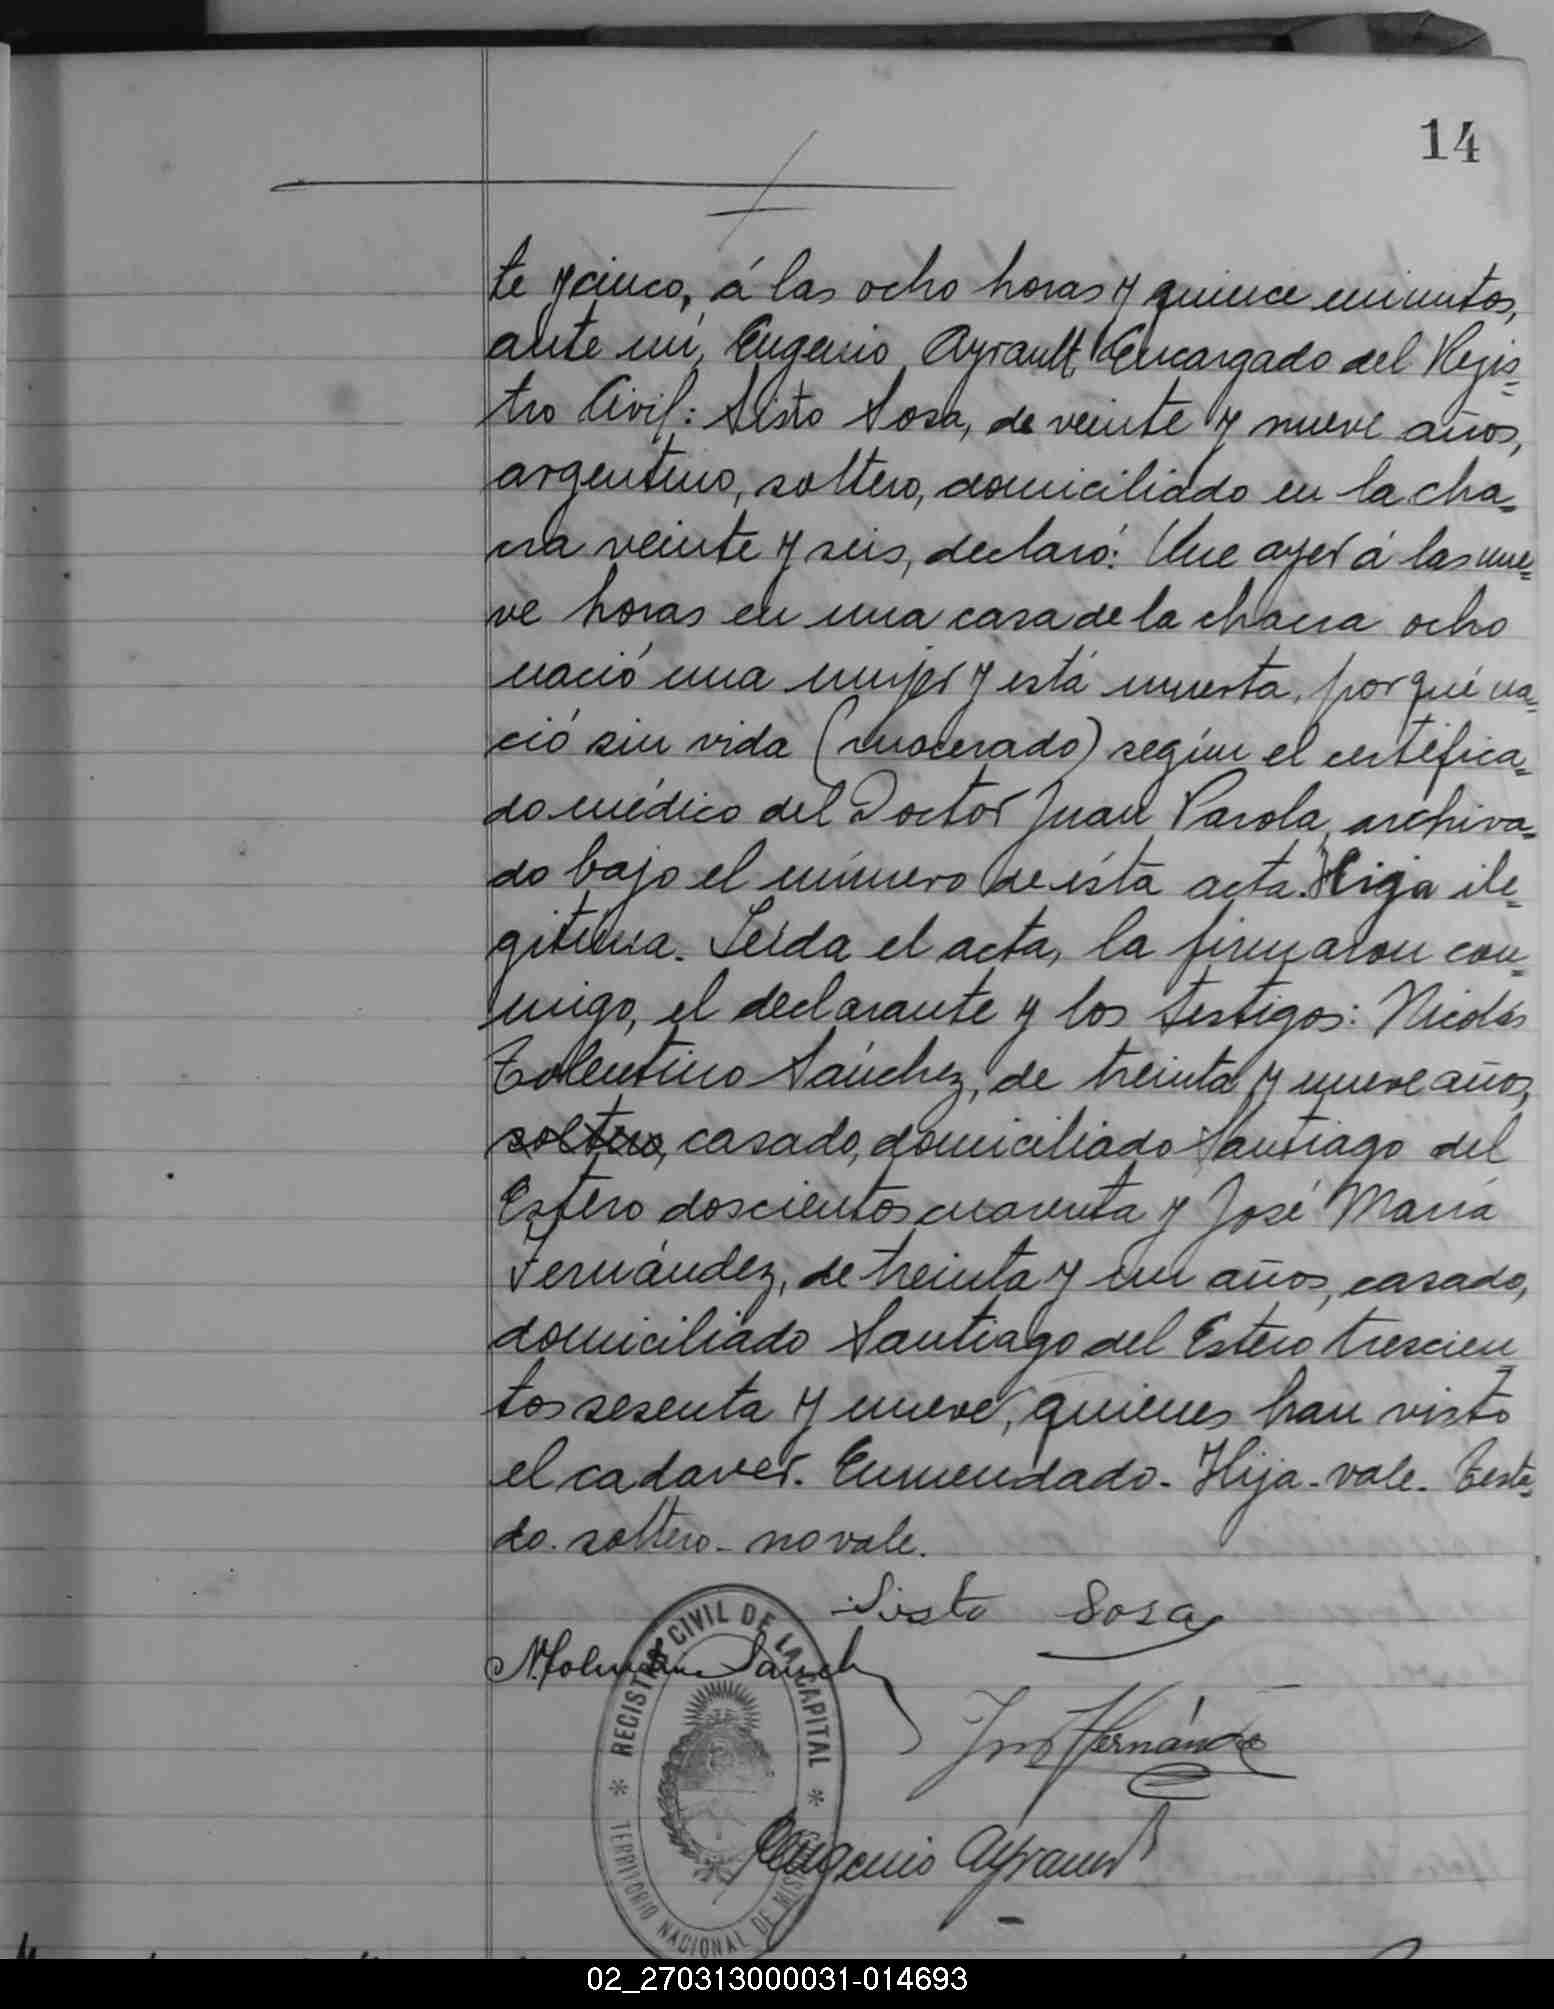 14
te y cinco, á las ocho horas y quince minutos,
ante mí, Eugenio Ayrault, Encargado del Regis=
tro Civil: Sisto Sosa, de veinte y nueve años,
argentino, soltero, domiciliado en la cha=
cra veinte y seis, declaró: Que ayer á las nue=
ve horas en una casa de la chacra ocho
nació una mujer y está muerta, por qué na=
ció sin vida (macerado) según el certifica=
do médico del Doctor Juan Parola, archiva=
do bajo el número de ésta acta. Hija ile=
gitima. Leida el acta, la firmaron con=
migo, el declarante y los testigos: Nicolás
Tolentino Sánchez, de treinta y nueve años,
soltero, casado, domiciliado Santiago del
Estero doscientos cuarenta y José María
Fernández, de treinta y un años, casado,
domiciliado Santiago del Estero trescien=
tos sesenta y nueve, quienes han visto
el cadaver. Enmendado - Hija - vale. Testa=
do. soltero - no vale.
Sisto Sosa
REGISTRO CIVIL DE LA CAPITAL
TERRITORIO NACIONAL DE MIS
Eugenio Ayrault
02_270313000031-014693